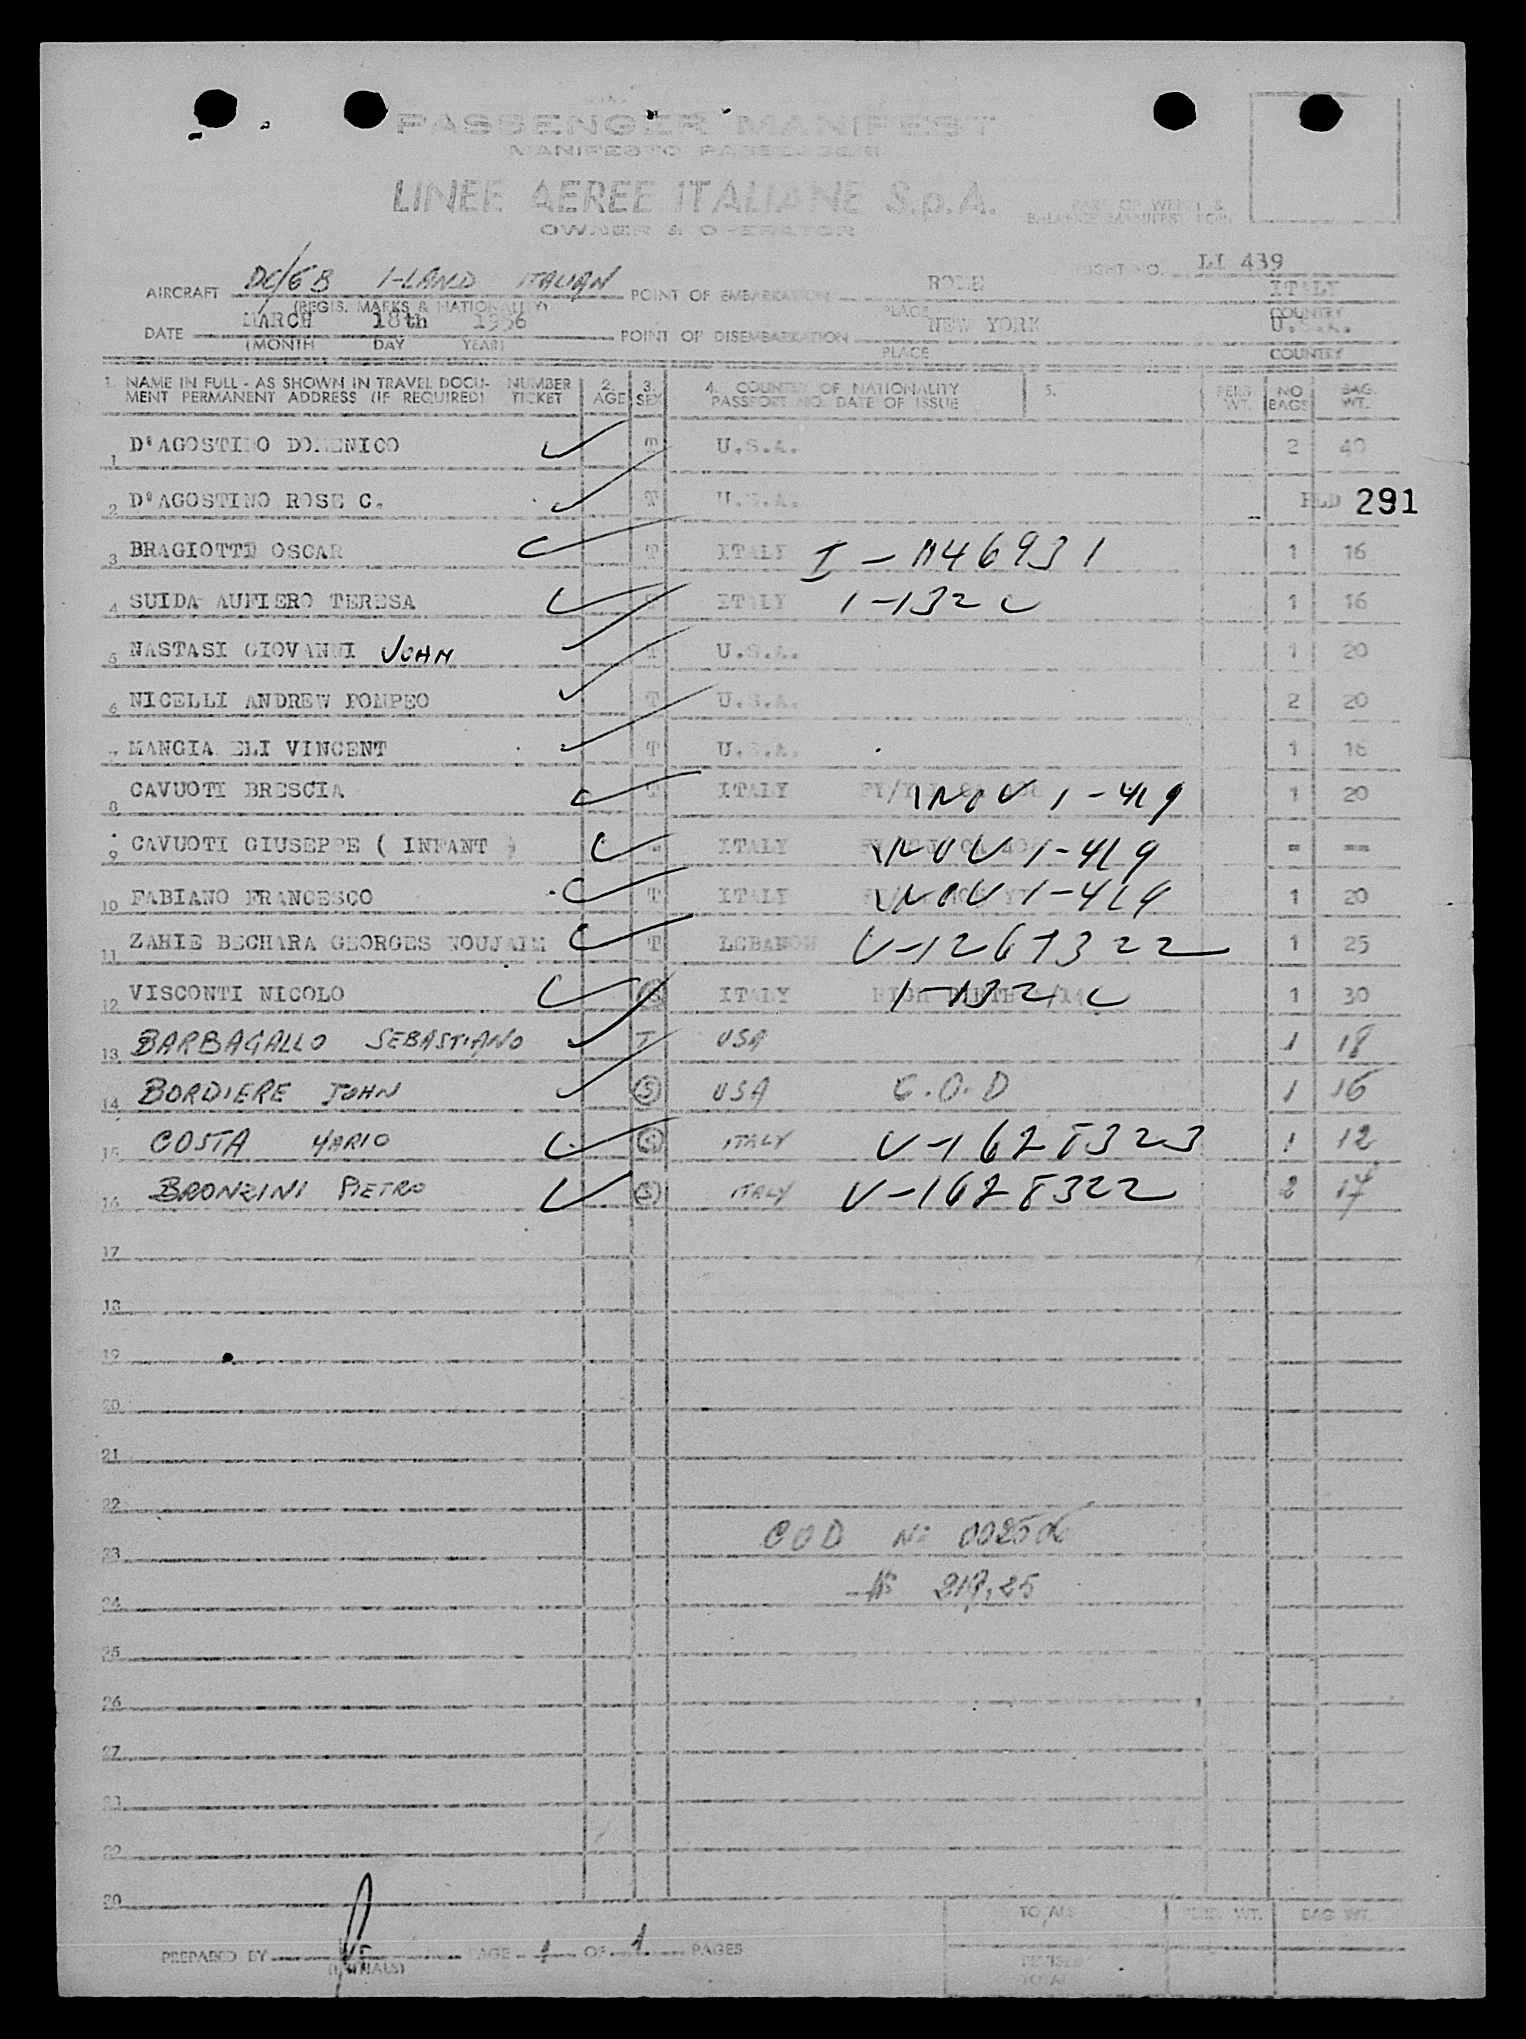 PASSENGER MANIFEST
MANIFESTO PASSEGGERI
LINEE AEREE ITALIANE S.p.A.
OWNER & OPERATOR
PART OF WEIGHT &
BALANCE MANIFEST FORM
AIRCRAFT DC/6B I-LAND ITALIAN POINT OF EMBARKATION ROME FLIGHT NO. LI 439
ITALY
(REGIS. MARKS & NATIONALITY) PLACE COUNTRY
DATE MARCH 18th 1956 POINT OF DISEMBARKATION NEW YORK U.S.A.
(MONTH DAY YEAR) PLACE COUNTRY
1. NAME IN FULL - AS SHOWN IN TRAVEL DOCU- NUMBER 2. 3. 4. COUNTRY OF NATIONALITY 5. PERS NO BAG.
MENT PERMANENT ADDRESS (IF REQUIRED) TICKET AGE SEX PASSPORT NO. DATE OF ISSUE WT. BAGS WT.
1 D'AGOSTINO DOMENICO T U.S.A. 2 40
2 D'AGOSTINO ROSE C. T U.S.A. PLD 291
3 BRAGIOTTI OSCAR T ITALY I-1146931 1 16
4 SUIDA AUFIERO TERESA ITALY 1-132 C 1 16
5 NASTASI GIOVANNI JOHN T U.S.A. 1 20
6 NICELLI ANDREW POMPEO T U.S.A. 2 20
7 MANGIA ELI VINCENT T U.S.A. 1 16
8 CAVUOTI BRESCIA T ITALY NOV 1-419 1 20
9 CAVUOTI GIUSEPPE ( INFANT ) - ITALY NOV 1-419 = ==
10 FABIANO FRANCESCO T ITALY NOV 1-419 1 20
11 ZAHIE BECHARA GEORGES NOUJAIM T LEBANON V-1267322 1 25
12 VISCONTI NICOLO S ITALY 1-132 C 1 30
13 BARBAGALLO SEBASTIANO T USA 1 18
14 BORDIERE JOHN S USA C.O.D 1 16
15 COSTA MARIO S ITALY V-1628323 1 12
16 BRONZINI PIETRO S ITALY V-1628322 2 17
17
18
19
20
21
22
23 COD N: 002506
24 $ 219,25
25
26
27
28
29
30
TOTALS PERS. WT. BAG WT.
PREPARED BY PAGE 1 OF 1 PAGES
(INITIALS)
REVISED
TOTAL